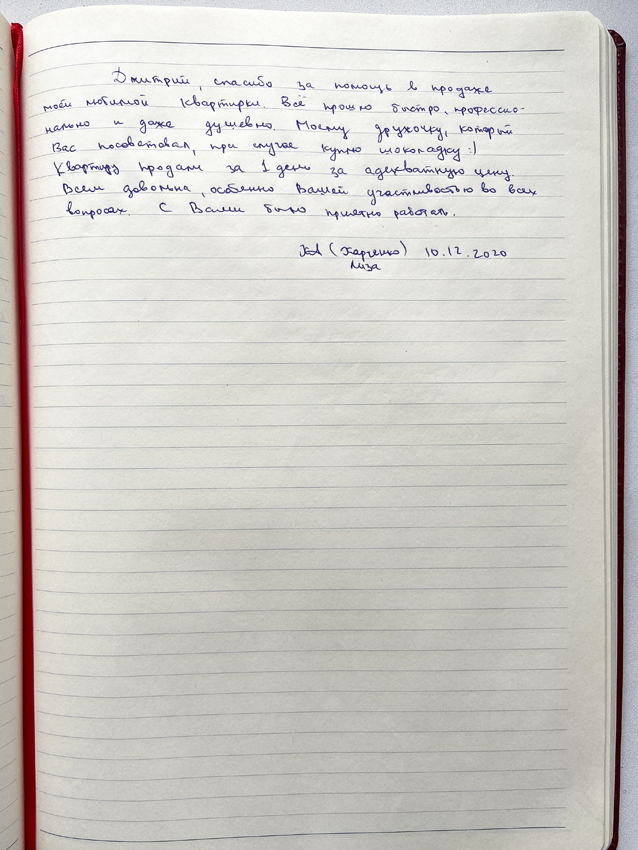 Дмитрий, спасибо за помощь в продаже
моей любимой квартирки. Всё прошло быстро, профессио-
нально и даже душевно. Моему дружочку, который
Вас посоветовал, при случае куплю шоколадку :)
Квартиру продали за 1 день за адекватную цену.
Всем довольна, особенно Вашей участливостью во всех
вопросах. С Вами было приятно работать.
(Харченко) 10.12.2020
Лиза